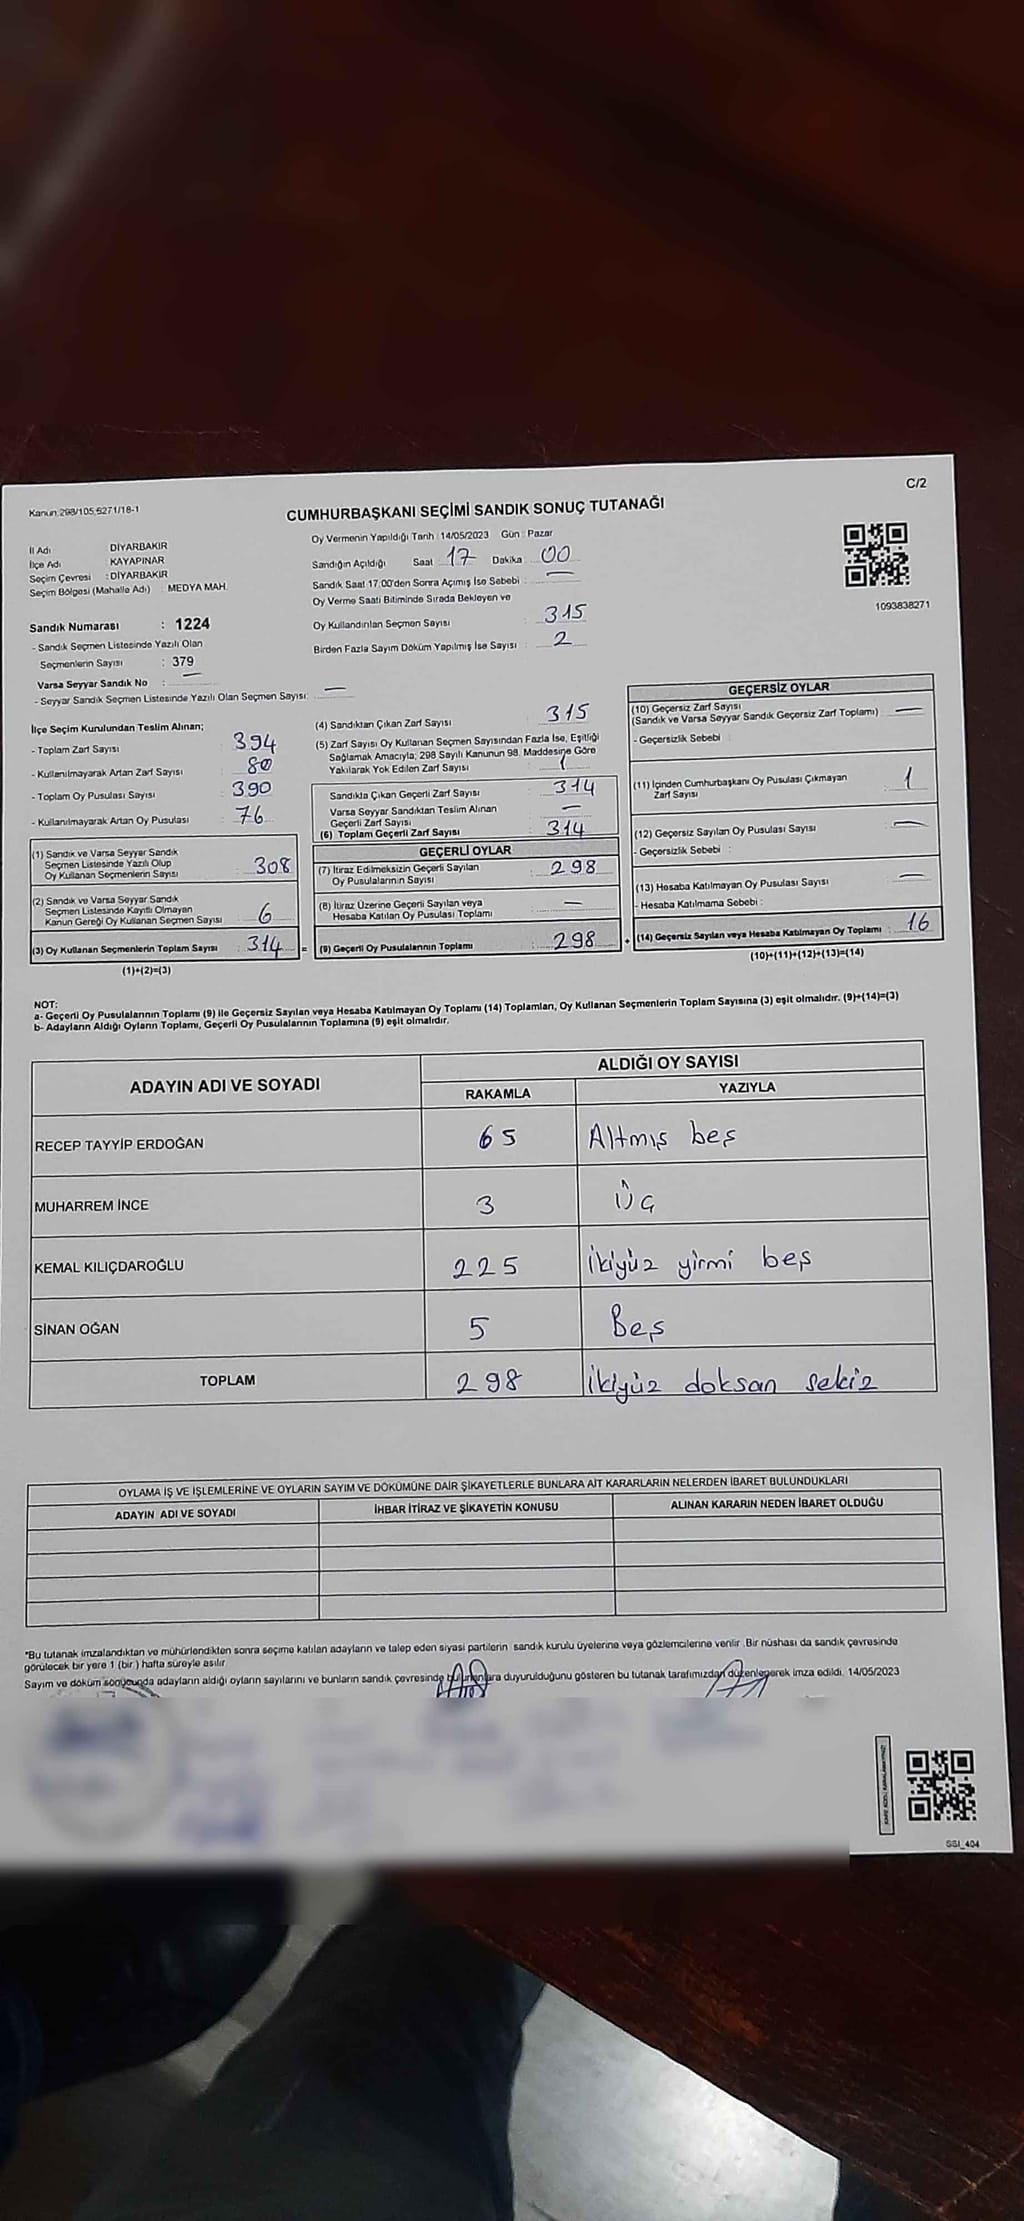 C/2
Kanun:298/105,6271/18-1
CUMHURBAŞKANI SEÇİMİ SANDIK SONUÇ TUTANAĞI
İl Adı DİYARBAKIR
İlçe Adı KAYAPINAR
Seçim Çevresi : DİYARBAKIR
Seçim Bölgesi (Mahalle Adı) MEDYA MAH.
Oy Vermenin Yapıldığı Tarih : 14/05/2023 Gün : Pazar
Sandığın Açıldığı Saat 17 Dakika 00
Sandık Saat 17.00'den Sonra Açımış İse Sebebi : —
Oy Verme Saati Bitiminde Sırada Bekleyen ve
Oy Kullandırılan Seçmen Sayısı : 315
Birden Fazla Sayım Döküm Yapılmış İse Sayısı : 2
1093838271
Sandık Numarası : 1224
- Sandık Seçmen Listesinde Yazılı Olan
Seçmenlerin Sayısı : 379
Varsa Seyyar Sandık No : —
- Seyyar Sandık Seçmen Listesinde Yazılı Olan Seçmen Sayısı: —
İlçe Seçim Kurulundan Teslim Alınan;
- Toplam Zarf Sayısı : 394
- Kullanılmayarak Artan Zarf Sayısı : 80
- Toplam Oy Pusulası Sayısı : 390
- Kullanılmayarak Artan Oy Pusulası : 76
(1) Sandık ve Varsa Seyyar Sandık
Seçmen Listesinde Yazılı Olup
Oy Kullanan Seçmenlerin Sayısı : 308
(2) Sandık ve Varsa Seyyar Sandık
Seçmen Listesinde Kayıtlı Olmayan
Kanun Gereği Oy Kullanan Seçmen Sayısı : 6
(3) Oy Kullanan Seçmenlerin Toplam Sayısı : 314 =
(1)+(2)=(3)
(4) Sandıktan Çıkan Zarf Sayısı : 315
(5) Zarf Sayısı Oy Kullanan Seçmen Sayısından Fazla İse, Eşitliği
Sağlamak Amacıyla; 298 Sayılı Kanunun 98. Maddesine Göre
Yakılarak Yok Edilen Zarf Sayısı : 1
Sandıkta Çıkan Geçerli Zarf Sayısı : 314
Varsa Seyyar Sandıktan Teslim Alınan
Geçerli Zarf Sayısı : —
(6) Toplam Geçerli Zarf Sayısı : 314
GEÇERLİ OYLAR
(7) İtiraz Edilmeksizin Geçerli Sayılan
Oy Pusulalarının Sayısı : 298
(8) İtiraz Üzerine Geçerli Sayılan veya
Hesaba Katılan Oy Pusulası Toplamı : —
(9) Geçerli Oy Pusulalarının Toplamı : 298 +
GEÇERSİZ OYLAR
(10) Geçersiz Zarf Sayısı
(Sandık ve Varsa Seyyar Sandık Geçersiz Zarf Toplamı) : —
- Geçersizlik Sebebi :
(11) İçinden Cumhurbaşkanı Oy Pusulası Çıkmayan
Zarf Sayısı : 1
(12) Geçersiz Sayılan Oy Pusulası Sayısı : —
- Geçersizlik Sebebi :
(13) Hesaba Katılmayan Oy Pusulası Sayısı : —
- Hesaba Katılmama Sebebi :
(14) Geçersiz Sayılan veya Hesaba Katılmayan Oy Toplamı : 16
(10)+(11)+(12)+(13)=(14)
NOT:
a- Geçerli Oy Pusulalarının Toplamı (9) ile Geçersiz Sayılan veya Hesaba Katılmayan Oy Toplamı (14) Toplamları, Oy Kullanan Seçmenlerin Toplam Sayısına (3) eşit olmalıdır. (9)+(14)=(3)
b- Adayların Aldığı Oyların Toplamı, Geçerli Oy Pusulalarının Toplamına (9) eşit olmalıdır.
ADAYIN ADI VE SOYADI ALDIĞI OY SAYISI
RAKAMLA YAZIYLA
RECEP TAYYİP ERDOĞAN 65 Altmış beş
MUHARREM İNCE 3 Üç
KEMAL KILIÇDAROĞLU 225 İkiyüz yirmi beş
SİNAN OĞAN 5 Beş
TOPLAM 298 İkiyüz doksan sekiz
OYLAMA İŞ VE İŞLEMLERİNE VE OYLARIN SAYIM VE DÖKÜMÜNE DAİR ŞİKAYETLERLE BUNLARA AİT KARARLARIN NELERDEN İBARET BULUNDUKLARI
ADAYIN ADI VE SOYADI İHBAR İTİRAZ VE ŞİKAYETİN KONUSU ALINAN KARARIN NEDEN İBARET OLDUĞU
*Bu tutanak imzalandıktan ve mühürlendikten sonra seçime katılan adayların ve talep eden siyasi partilerin sandık kurulu üyelerine veya gözlemcilerine verilir. Bir nüshası da sandık çevresinde
görülecek bir yere 1 (bir) hafta süreyle asılır
Sayım ve döküm sonucunda adayların aldığı oyların sayılarını ve bunların sandık çevresinde bulunanlara duyurulduğunu gösteren bu tutanak tarafımızdan düzenlenerek imza edildi. 14/05/2023
SSI_404